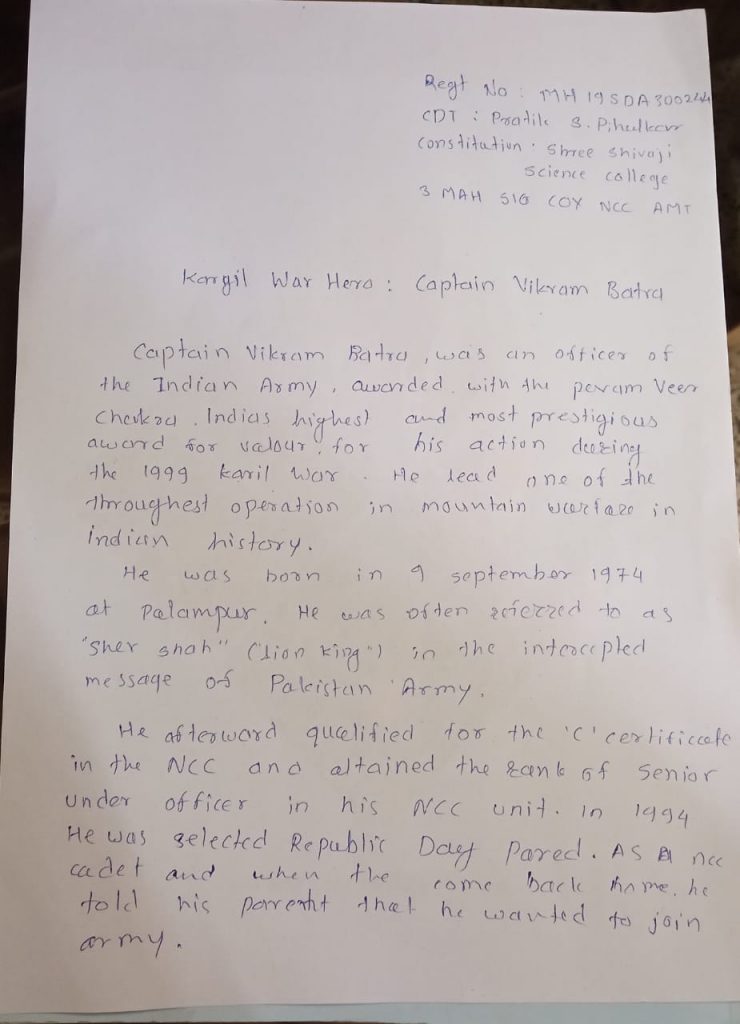 Regt No : MH 19 SDA 300244
CDT : Pratik S. Pihulkar
Constitution : Shree Shivaji
Science college
3 MAH SIG COY NCC AMT
Kargil War Hero : Captain Vikram Batra
Captain Vikram Batra , was an officer of
the Indian Army , awarded with the param Veer
Chakra . Indias highest and most prestigious
award for valour , for his action during
the 1999 karil War . He lead one of the
throughest operation in mountain warfare in
indian history .
He was born in 9 september 1974
at Palampur . He was often referred to as
"Sher shah" ("lion king") in the intercepted
message of Pakistan Army .
He afterword qualified for the 'C' certificate
in the NCC and attained the rank of Senior
under officer in his NCC unit . in 1994
He was selected Republic Day Pared . AS a ncc
cadet and when the come back home , he
told his parrent that he wanted to join
army .